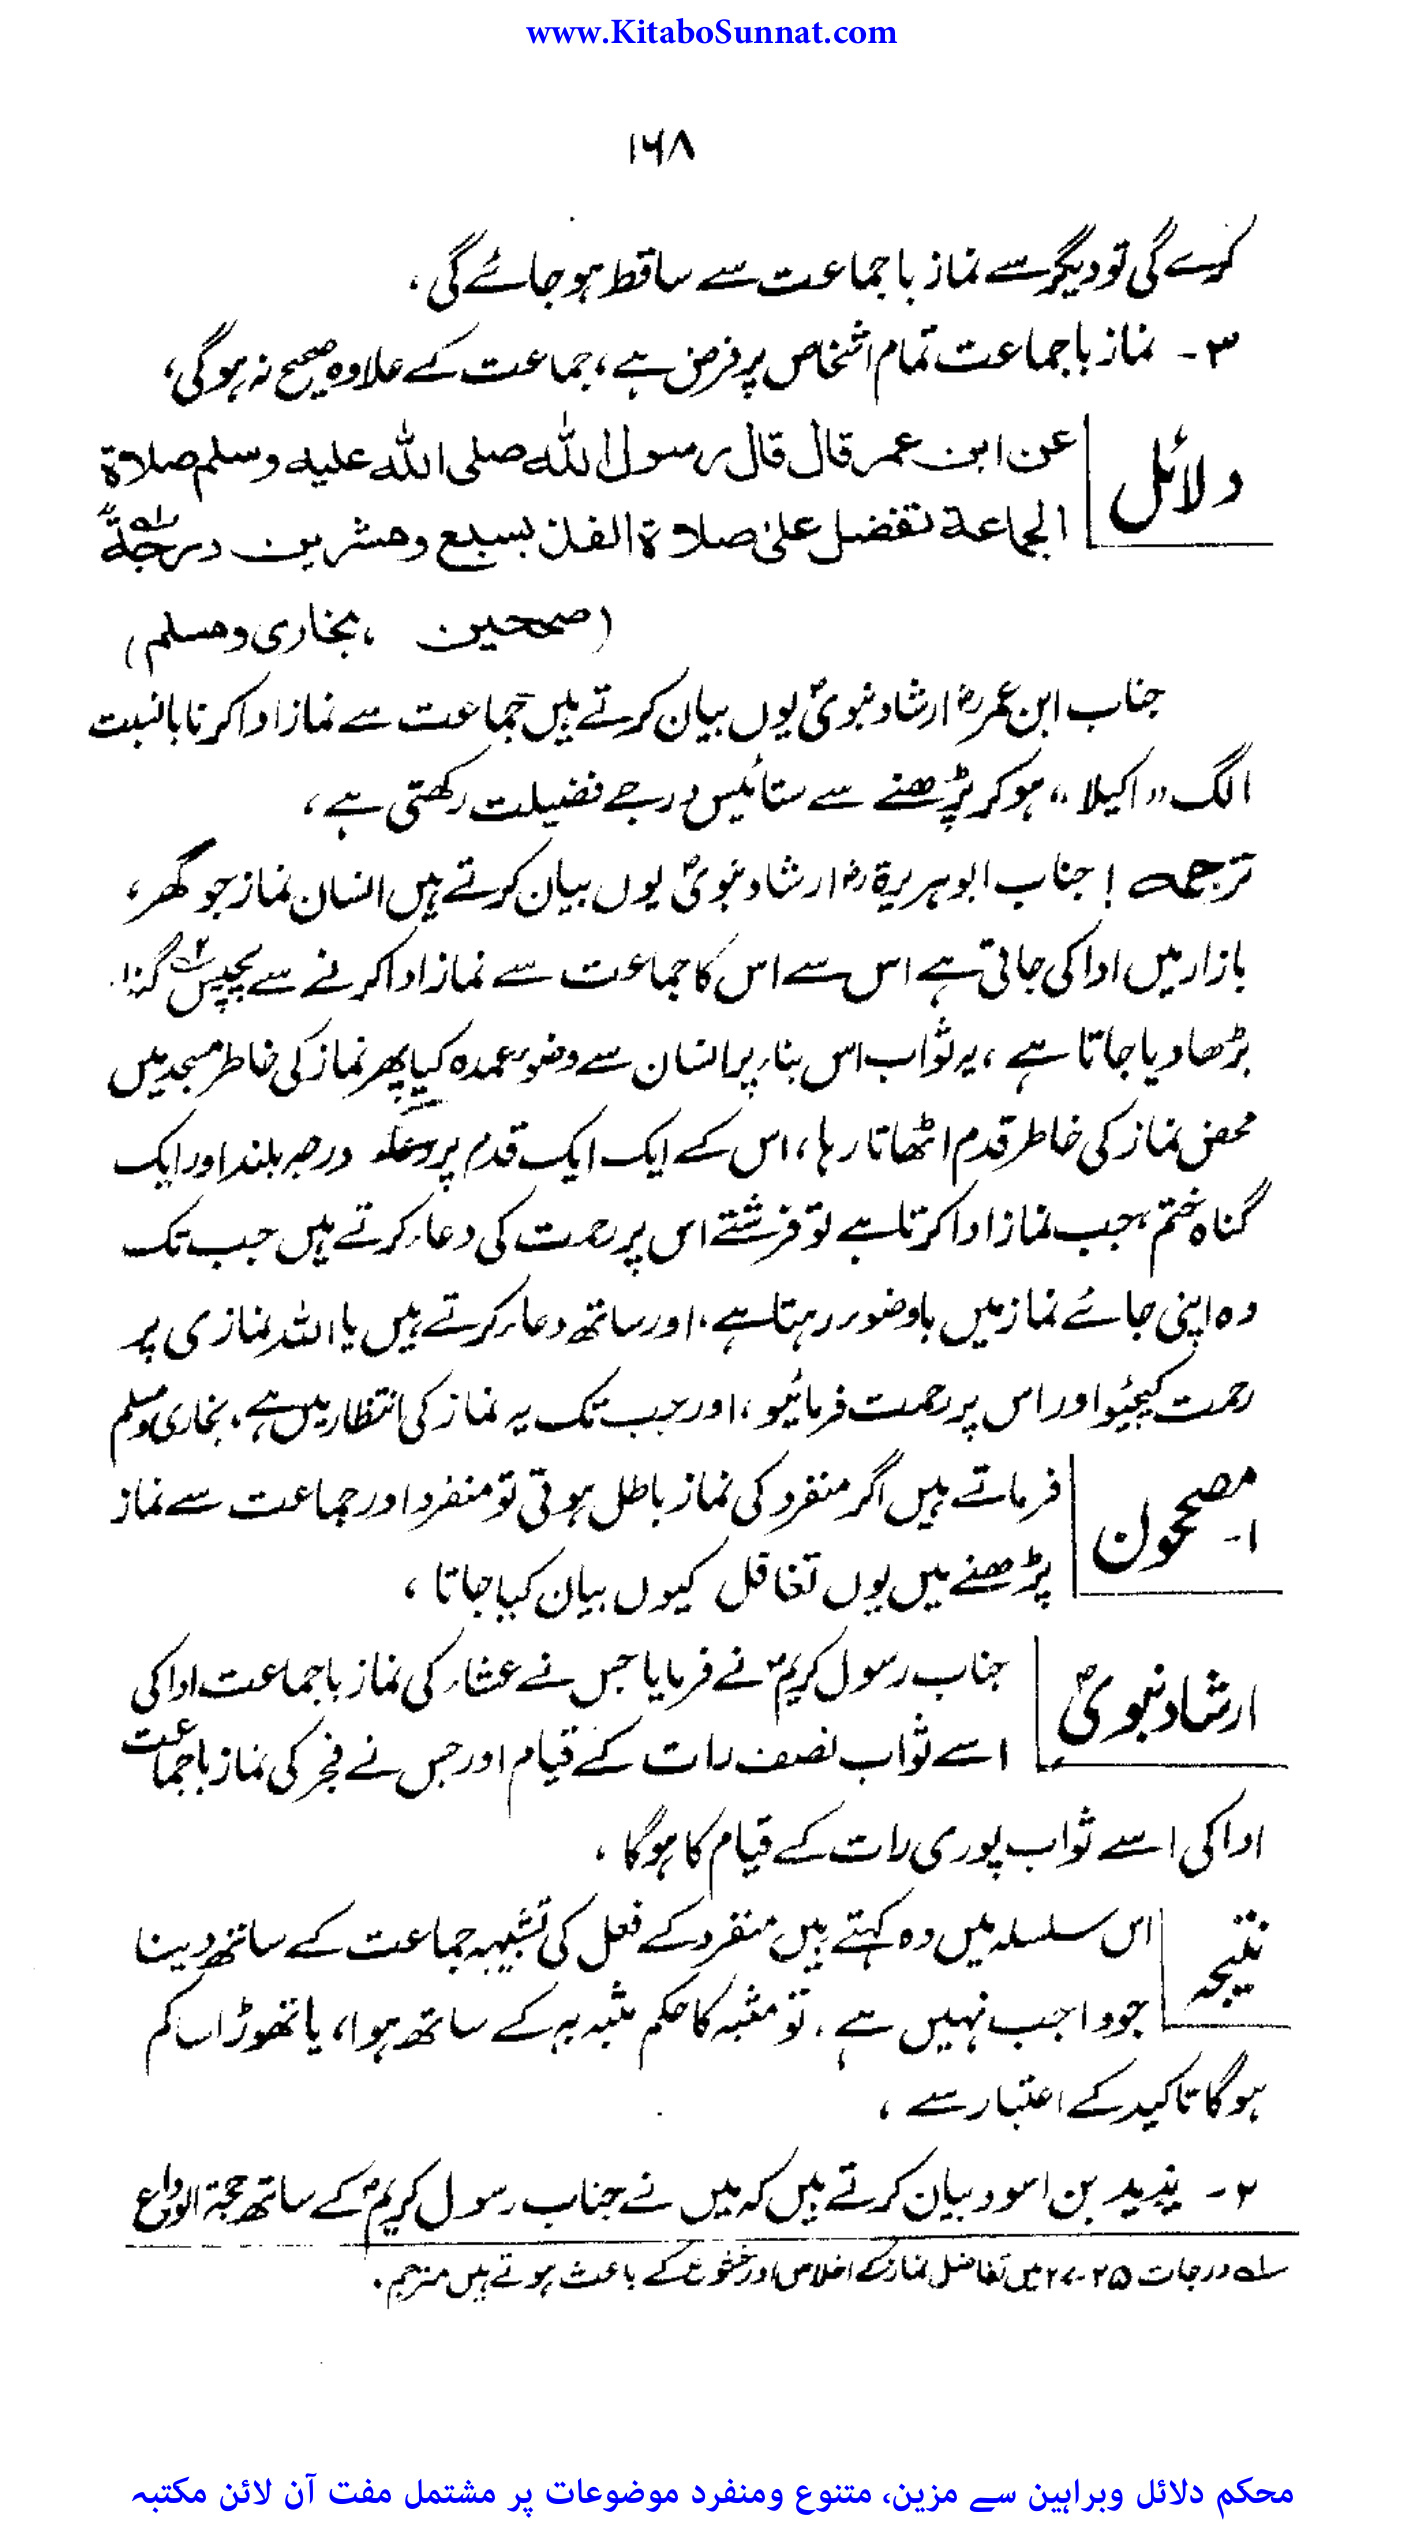 www.KitaboSunnat.com
۱۶۸
کرے گی تو دیگر سے نماز باجماعت سے ساقط ہو جائے گی،
۳۔ نماز باجماعت تمام اشخاص پر فرض ہے، جماعت کے علاوہ صحیح نہ ہوگی،
دلائل
عن ابن عمر قال قال رسول الله صلى الله عليه وسلم صلاة
الجماعة تفضل على صلاة الفذ بسبع وعشرين درجة لہ
(صحیحین ، بخاری و مسلم)
جناب ابن عمرؓ ارشاد نبویؐ یوں بیان کرتے ہیں جماعت سے نماز ادا کرنا بالنسبت
الگ "اکیلا" ہو کر پڑھنے سے ستائیس درجے فضیلت رکھتی ہے،
ترجمہ! جناب ابوہریرۃؓ ارشاد نبویؐ یوں بیان کرتے ہیں انسان نماز جو گھر،
بازار میں ادا کی جاتی ہے اس سے اس کا جماعت سے نماز ادا کرنے سے پچیس گنا
بڑھا دیا جاتا ہے، یہ ثواب اس بناء پر انسان سے وضوء عمدہ کیا پھر نماز کی خاطر مسجد میں
محض نماز کی خاطر قدم اٹھاتا رہا، اس کے ایک ایک قدم پر درجہ بلند اور ایک
گناہ ختم، جب نماز ادا کرتا ہے تو فرشتے اس پر رحمت کی دعاء کرتے ہیں جب تک
وہ اپنی جائے نماز میں باوضوء رہتا ہے، اور ساتھ دعاء کرتے ہیں یا اللہ نمازی پر
رحمت کیجیئو اور اس پر رحمت فرمائیو، اور جب تک یہ نماز کی انتظار میں ہے، بخاری و مسلم
مصححون
۱۔
فرماتے ہیں اگر منفرد کی نماز باطل ہوتی تو منفرد اور جماعت سے نماز
پڑھنے میں یوں تغافل کیوں بیان کیا جاتا،
ارشاد نبویؐ
جناب رسول کریمؐ نے فرمایا جس نے عشاء کی نماز باجماعت ادا کی
اسے ثواب نصف رات کے قیام اور جس نے فجر کی نماز باجماعت
ادا کی اسے ثواب پوری رات کے قیام کا ہوگا،
نتیجہ
اس سلسلہ میں وہ کہتے ہیں منفرد کے فعل کی تشبیہہ جماعت کے ساتھ دینا
جو واجب نہیں ہے، تو مشبہ کا حکم مشبہ بہ کے ساتھ ہوا، یا تھوڑا سا کم
ہوگا تاکید کے اعتبار سے،
۲۔ یذید بن اسود بیان کرتے ہیں کہ میں نے جناب رسول کریمؐ کے ساتھ حجۃ الوداع
لہ درجات ۲۵-۲۷ میں تفاضل نماز کے اخلاص اور خشوع کے باعث ہوتے ہیں مترجم.
محکم دلائل وبراہین سے مزین، متنوع ومنفرد موضوعات پر مشتمل مفت آن لائن مکتبہ